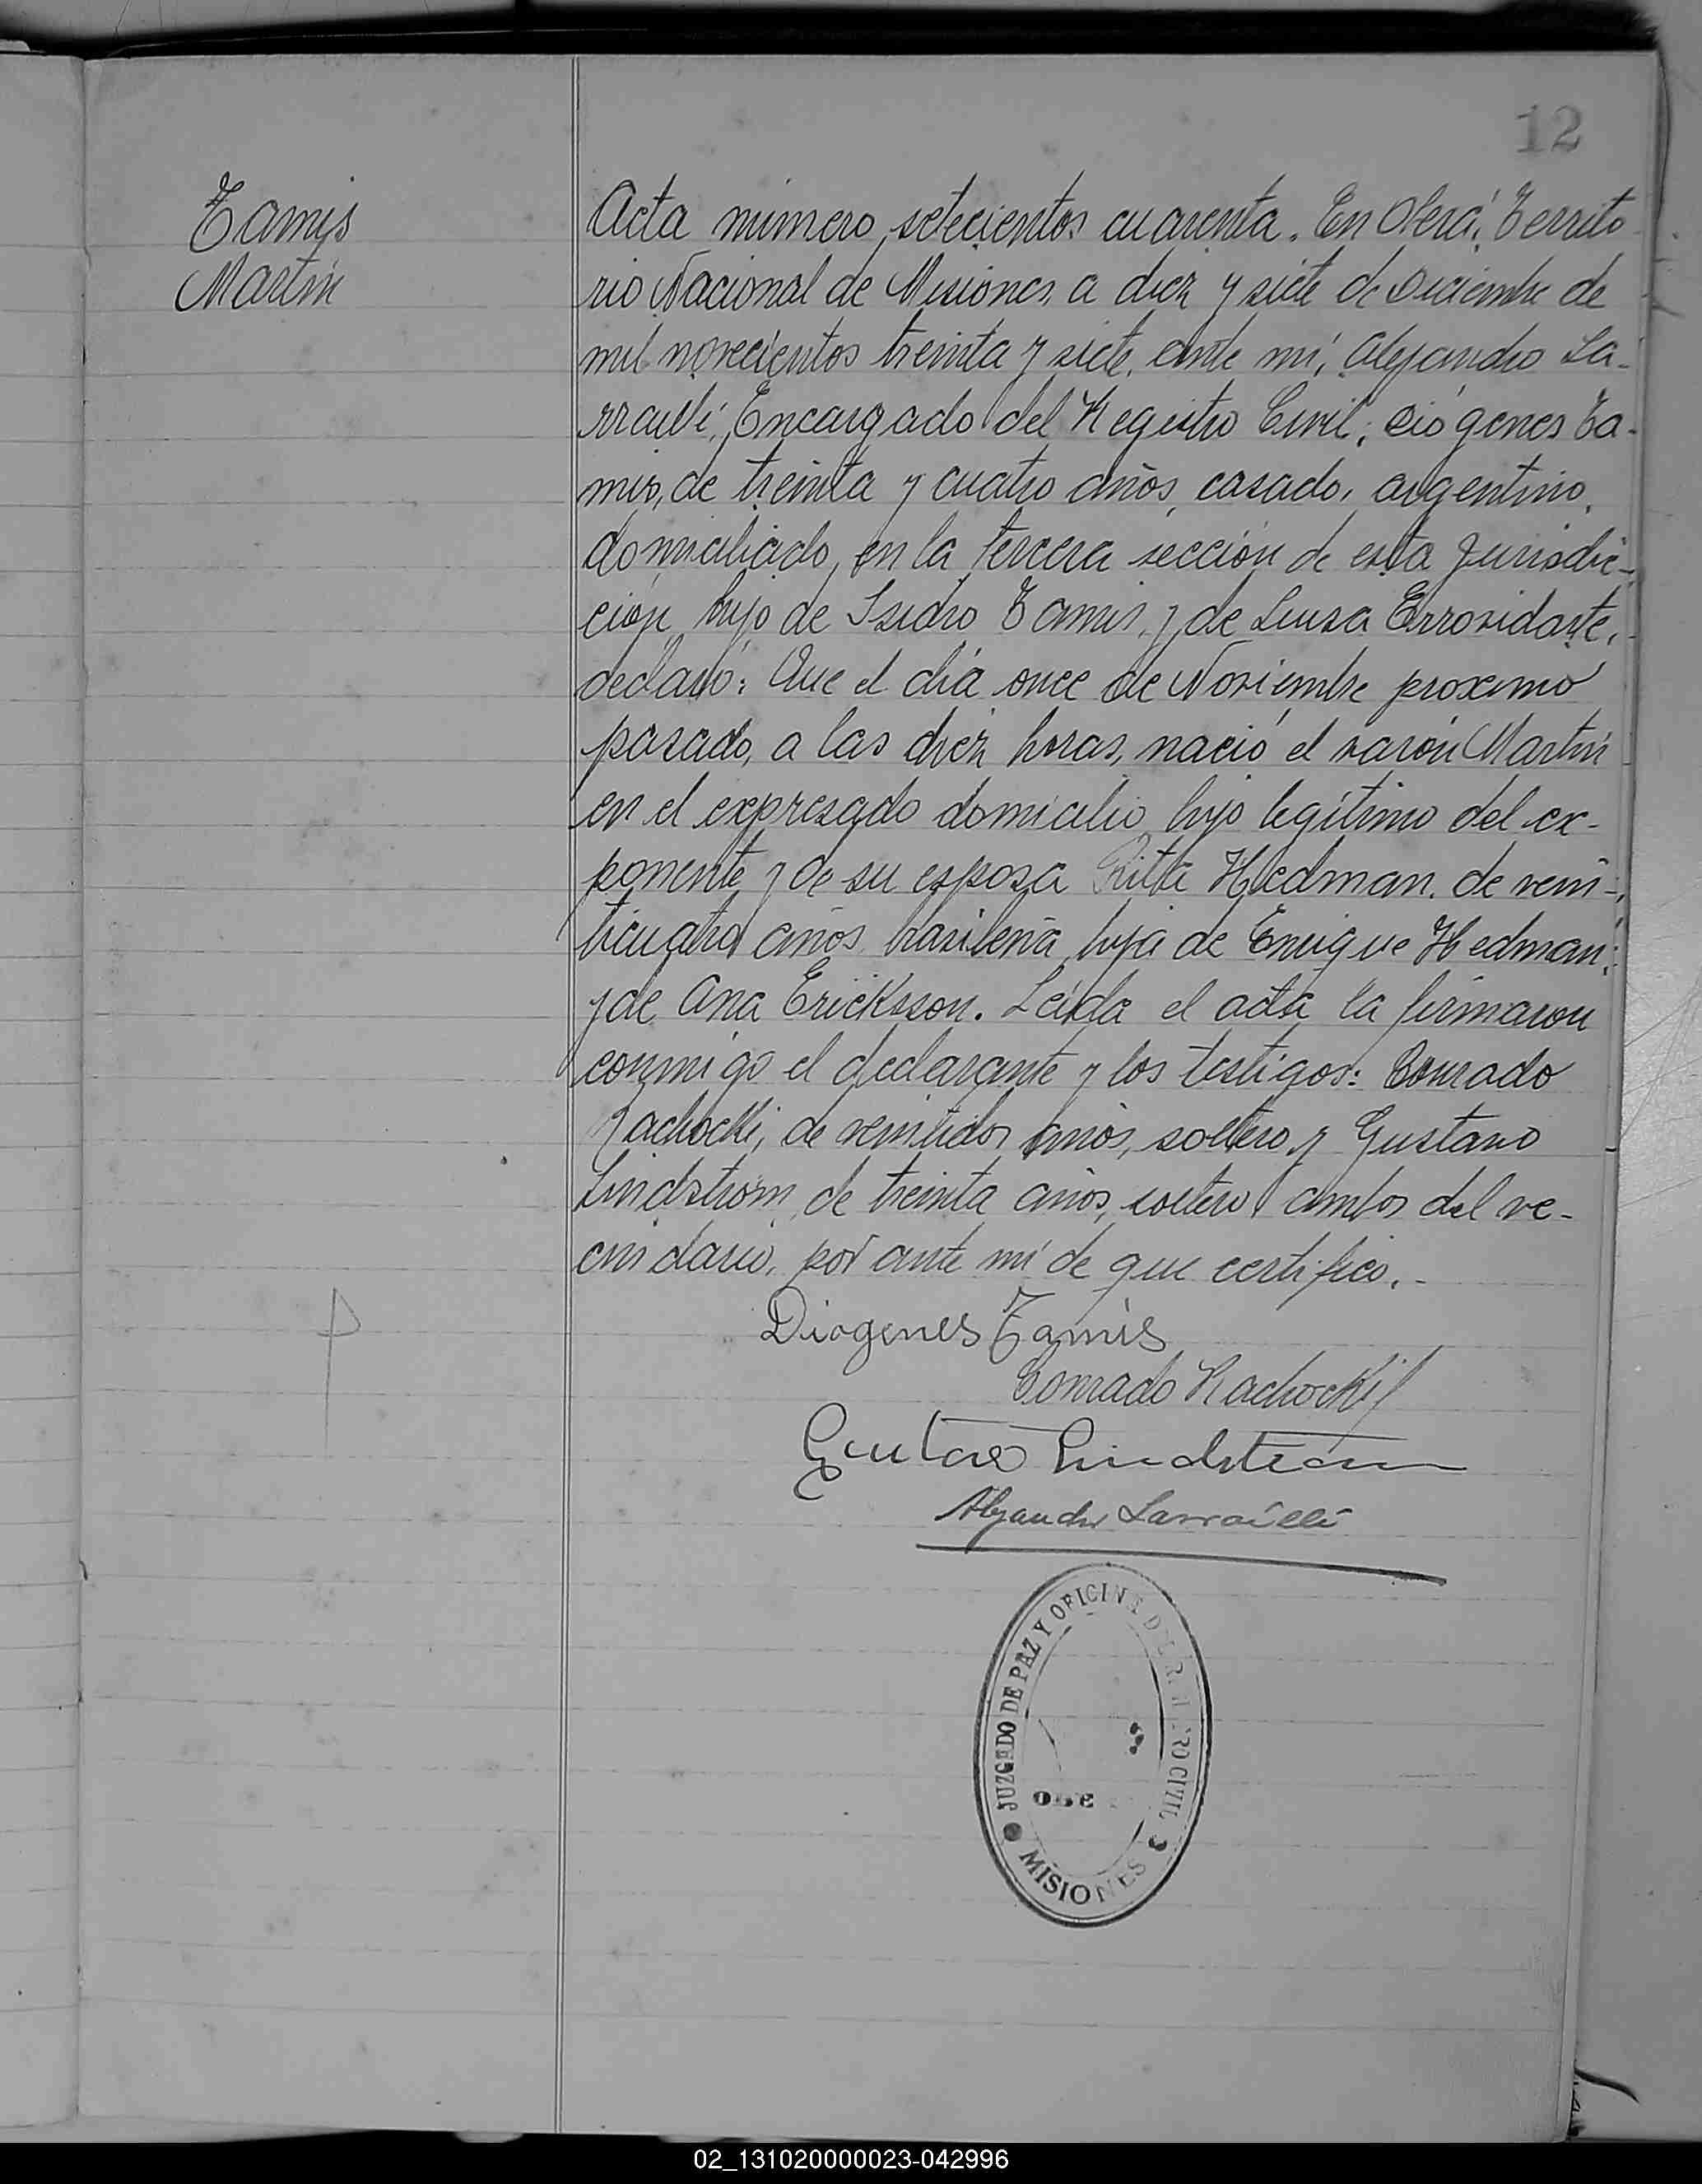 12
Tamis
Martin
Acta número setecientos cuarenta. En Oberá, Territo
rio Nacional de Misiones, a diez y siete de Diciembre de
mil novecientos treinta y siete, ante mí, Alejandro La-
rraullí, Encargado del Registro Civil; Diógenes Ta-
mis, de treinta y cuatro años, casado, argentino,
domiciliado en la tercera sección de esta Jurisdic-
ción, hijo de Isidro Tamis, y de Luisa
declaró: Que el día once de Noviembre proximo
pasado, a las diez horas, nació el varón Martin
en el expresado domicilio, hijo legítimo del ex-
ponente y de su esposa Rita Hedman, de vein-
ticuatro años, brasileña, hija de Enrique Hedman;
y de Ana Ericksson. Leída el acta la firmaron
conmigo el declarante y los testigos: Conrado
de veintidos años, soltero y Gustavo
Lindstrom, de treinta años, soltero, ambos del ve-
cindario, por ante mí de que certifico.-
Diogenes Tamis
Conrado
Gustavo Lindstrom
Alejandro
JUZGADO DE PAZ Y OFICINA DEL REGISTRO CIVIL
MISIONES
02_131020000023-042996